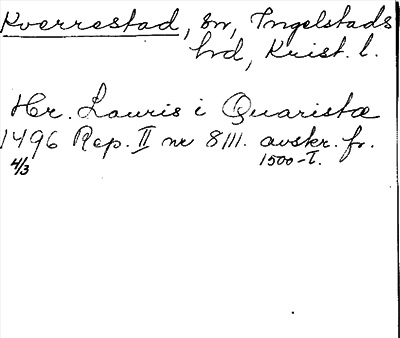 Kverrestad, sn, Ingelstads
hd, Krist. l.
Hr. Lauris i Quaristæ
1496 Rep. II nr 8111. avskr. fr.
4/3 1500-T.